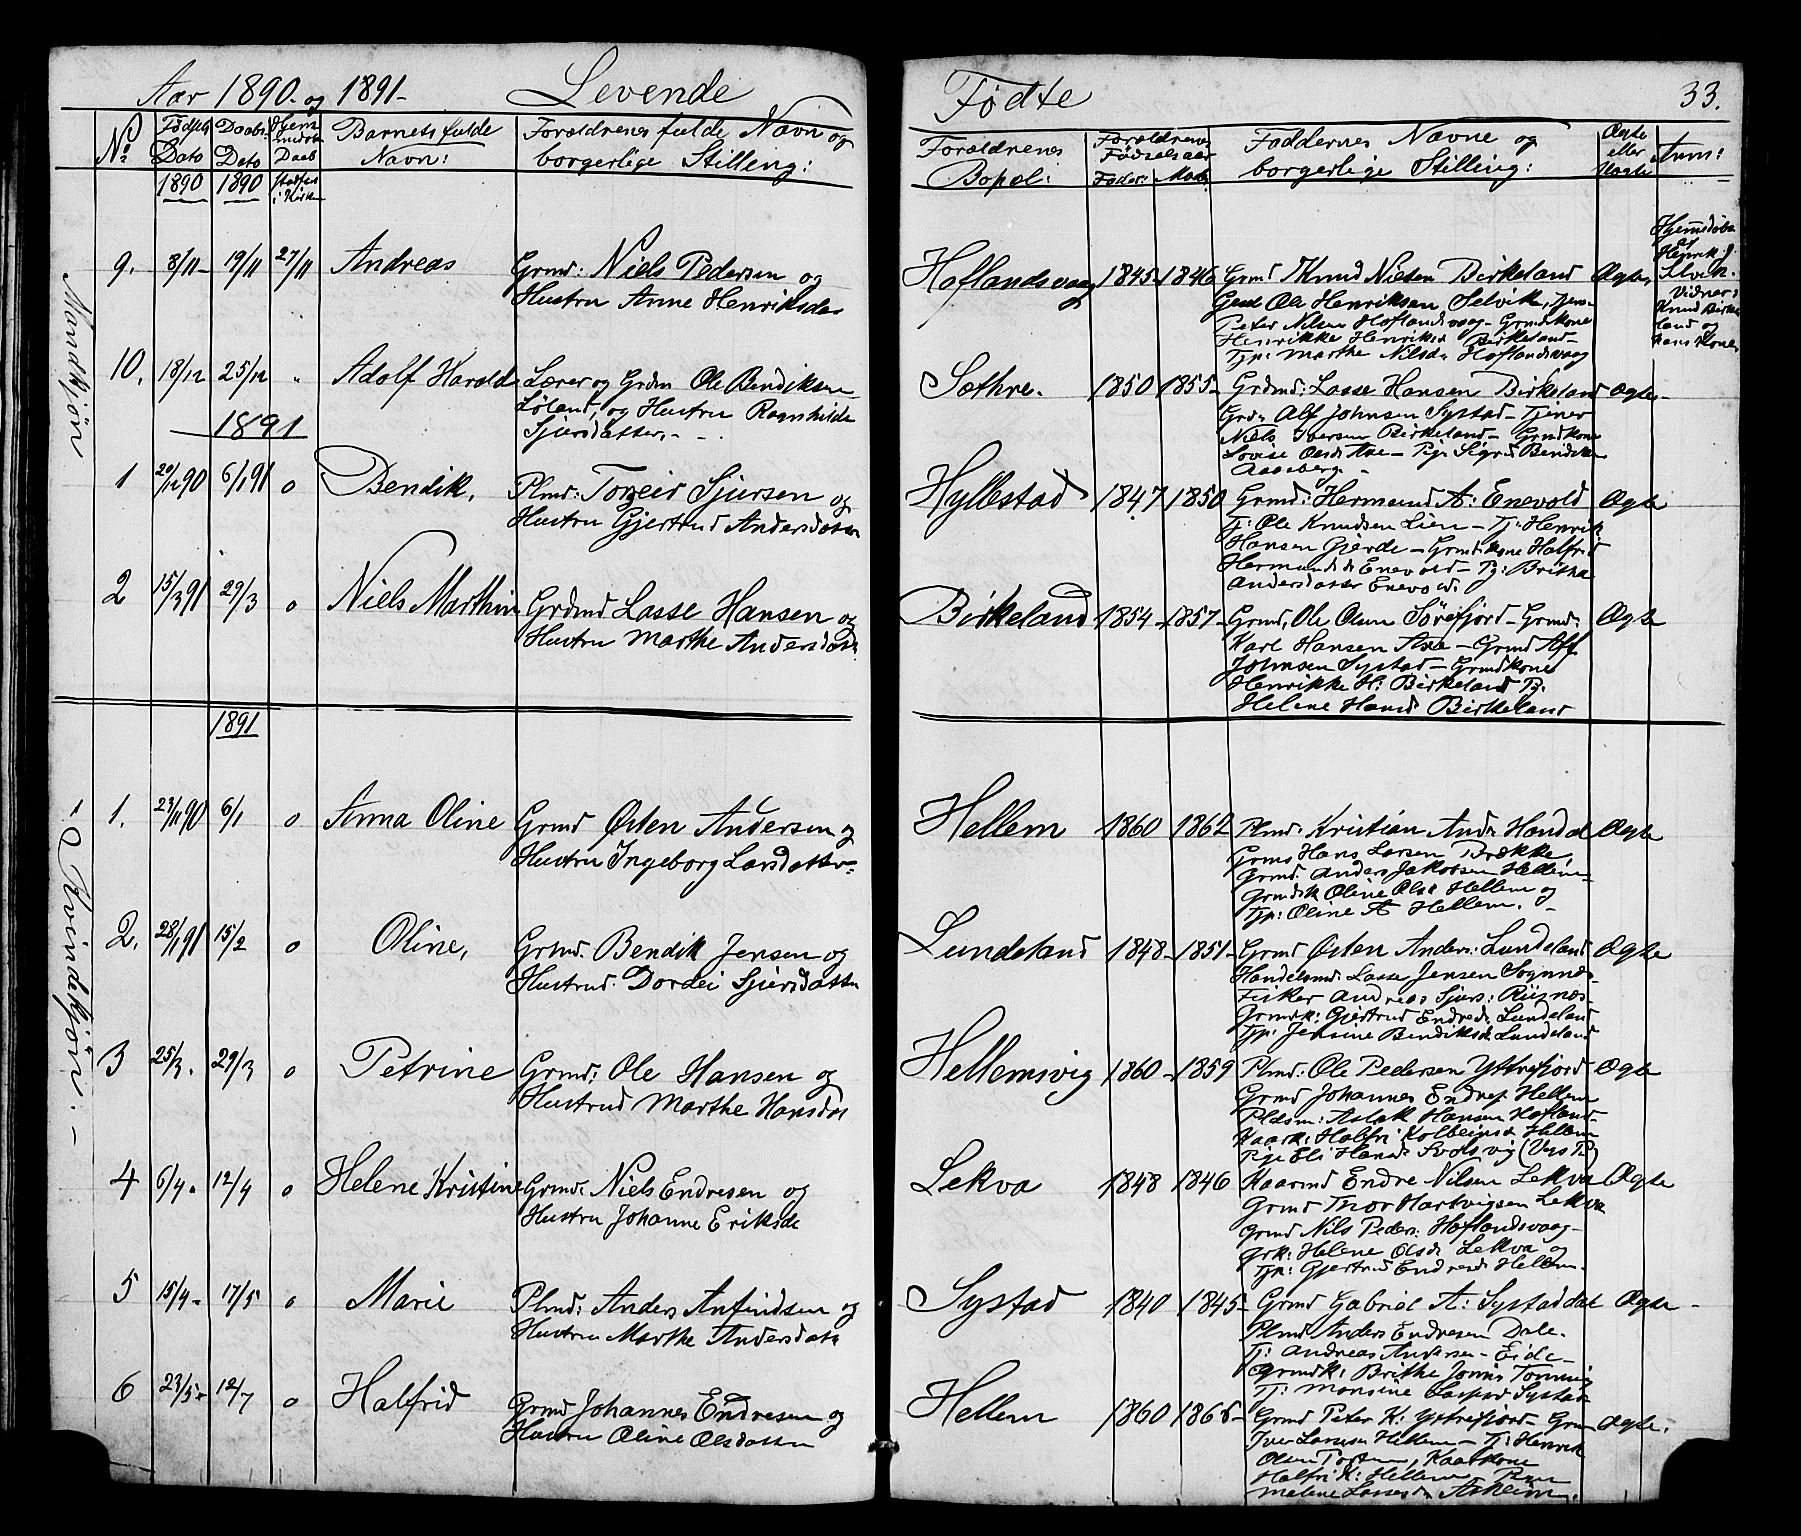 Aar 1890. og 1891- Levende
No
Fødsels Dato
Daabs Dato
Barnets fulde Navn:
Forældrenes fulde Navn og
borgerlige Stilling:
1890 1890
Mandkjøn
9. 8/11- 19/11 27/11 Andreas Grmd: Niels Pedersen og
Hustru Anne Henriksda
10. 18/12 25/12 " Adolf Harald Lærer og Grdm Ole Bendiksen
Løland, og Hustru Ragnhilde
Sjursdatter. -
1891
1 29/12 90 6/1 91 o Bendik, Plmd: Torgeir Sjursen og
Hustru Gjertrud Andersdatter
2 15/3 91 29/3 o Niels Marthin Grdmd Lasse Hansen og
Hustru Marthe Andersdatt
1891
Kvindekjøn. -
1. 23/11 90 6/1 o Anna Oline Grmd Østen Andersen og
Hustru Ingeborg Larsdatter-
2. 28/1 91 15/2 o Oline, Grmd. Bendik Jensen og
Hustrud. Dordei Sjursdatter
3 25/2. 29/3 o Petrine Grmd: Ole Hansen og
Hustrud Marthe Hansdat
4 6/4. 12/4 o Helene Kristine Grmd: Niels Endresen og
Hustru Johanne Eriksda
5 15/4- 17/5 o Marie Plmd: Anders Anfindsen og
Hustru Marthe Andersdatt
6 23/5 12/7 o Halfrid Grmd Johannes Endresen og
Hustru Oline Olsdatter
Fødte 33.
Forældrenes
Bopel:
Forældrenes
Fødselsaar
Fader: Mod.
Faddernes Navne og
borgerlige Stilling:
Ægte
eller
Uægte
Anm:
Hoflandsvaag 1845- 1846 Grmd Knud Nielsen Birkeland Ægte,
Ole Henriksen Selvik,
Peter Nilsen Hoflandsvaag- Grmdkone
Henrikke Henriksd Birkeland-
Tjp: Marthe Nilsda Hoflandsvaag
Hjemmedøbt
af
Henrik
Selvik.
Vidner:
Knud Birke
land og
hans Kone
Sæthre. 1850 1855- Grdmd: Lasse Hansen Birkeland Ægte-
Alf Johnsen Systad- Tjener
Niels Iversen Birkeland- Grmdkone
Lovise Olsd Aae- Pige Sigrid Bendiks
Aaseberg -
Hyllestad 1847 1850 Grmd: Hermund A: Enevold Ægte
Tj: Ole Knudsen Lien- Tj: Henrik
Hansen Gjerde- Grmdkone Halfrid
Hermundsd Enevold- Pg: Britha
Andersdatter Enevold
Birkeland 1854- 1857- Grmd, Ole Olsen Sørefjord- Grmd:
Ægte
Karl Hansen Aaa- Grmd Alf
Johnsen Systad- Grmdkone
Henrikke H: Birkeland Pg.
Helene Hansd Birkeland
Hellem 1860 1862 Plmd: Kristian Andr. Handal Ægte
Grmd Hans Larsen Brække,
Grmd. Anders Jakobsen Hellem-
Grmdk Oline Olsd Hellem og
Tjp: Oline A Hellem. -
Lundeland 1848- 1851- Grmd Østen Anders: Lundeland Ægte
Handelsmd: Lasse Jensen Sognnes
Fisker Andreas Sjurs: Risnes-
Grmdk: Gjertrud Endresd Lundeland
Tjp: Jensine Bendiksd Lundeland
Hellemsvig 1860- 1859 Plmd: Ole Pedersen Yttrefjord Ægte
Grmd Johannes Endres. Hellem
Pldsm: Aslak Hansen Hofland-
Kaark: Halfri Kolbeinsd Hellem
Pige Eli Hansd
Lekva 1848 1846 Kaarmd Endre Nilsen Lekva Ægte
Grmd Thor Hartvigsen Lekva
Grmd Nils Peders: Hoflandsvaag-
Grk: Helene Olsd Lekva og
Tjp: Gjertrud Endresd Hellem.
Systad 1840 1845- Grmd Gabriel A: Systaddal Ægte-
Plmd Anders Endresen Dale.
Tj: Andreas Andersen- Eide-
Grmdk: Brithe Tønning
Tj: Monsine Systad
Hellem 1860 1865- Grmd Peter K: Yttrefjord- Grm Ægte.
Iver Larsen Hellem- Tj: Henrik
Olsen Kaarkone
Halfri K: Hellem
Malene Lassesd Askeim.